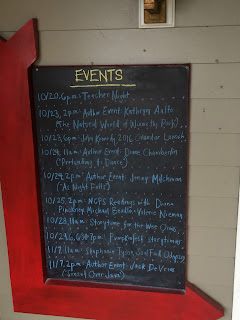 EVENTS
10/20, 6pm: Teacher Night
10/23, 2pm: Author Event Kathryn Aalto
(The Natural World of Winnie the Pooh)
10/23, 6pm: John Kennedy 2016 Calendar Launch
10/24, 11am: Author Event: Diane Chamberlain
(Pretending to Dance)
10/24, 2pm: Author Event: Jenny Milchman
(As Night Falls)
10/25, 2pm: NCPS Readings with Diana
Pinckney, Michael Beadle, Valerie Nieman
10/28, 11am: Storytime for the Wee Ones
10/29, 6:30-7pm: Storytime
11/7, 11am: Stephanie Tyson Soul Food Odyssey
11/7, 2pm: Author Event: Jack
(Java)